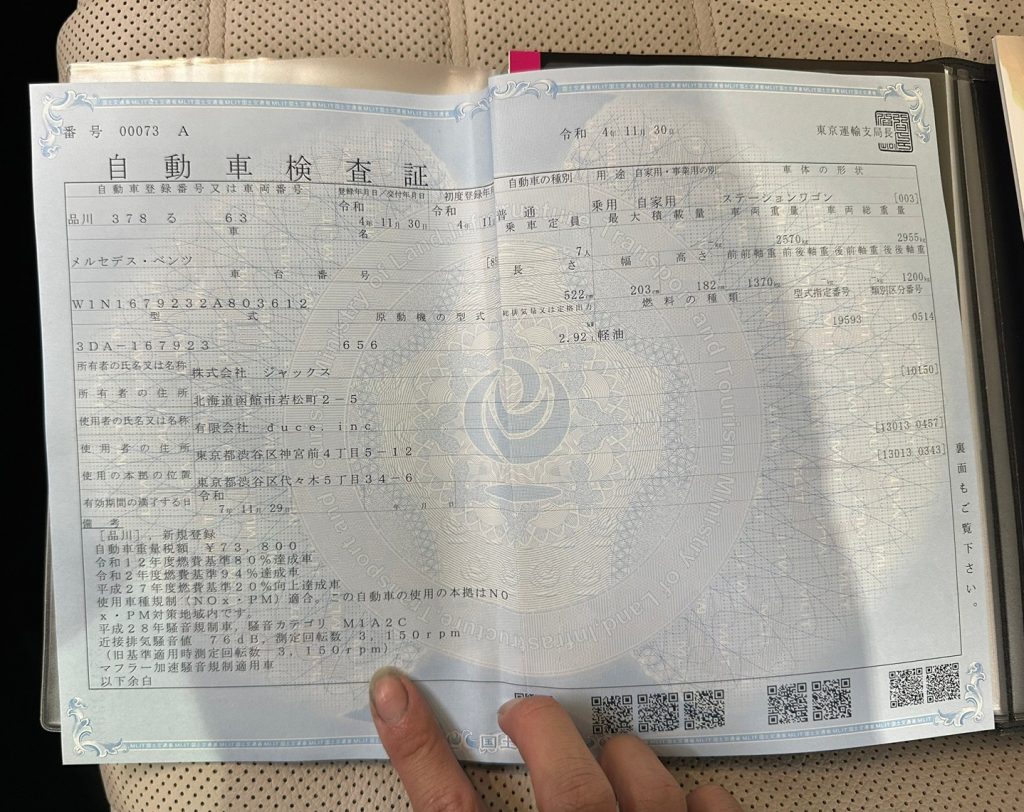 番号 00073 A
令和 4年 11月 30日
東京運輸支局長
自動車検査証
自動車登録番号又は車両番号 登録年月日/交付年月日 初度登録年月 自動車の種別 用途 自家用・事業用の別 車体の形状
品川 378 る 63 令和 4年 11月 30日 令和 4年 11月 普通 乗用 自家用 ステーションワゴン [003]
車名 乗車定員 最大積載量 車両重量 車両総重量
メルセデス・ベンツ 7人 -kg 2570kg 2955kg
車台番号 長さ 幅 高さ 前前軸重 前後軸重 後前軸重 後後軸重
W1N1679232A803612 522cm 203cm 182cm 1370kg -kg -kg 1200kg
型式 原動機の型式 総排気量又は定格出力 燃料の種類 型式指定番号 類別区分番号
3DA-167923 656 2.92L 軽油 19593 0514
所有者の氏名又は名称 株式会社 ジャックス
所有者の住所 北海道函館市若松町2-5 [10150]
使用者の氏名又は名称 有限会社 duce.inc
使用者の住所 東京都渋谷区神宮前4丁目5-12 [13013 0457]
使用の本拠の位置 東京都渋谷区代々木5丁目34-6 [13013 0343]
有効期間の満了する日 令和 7年 11月 29日 年 月 日
備考
[品川],新規登録
自動車重量税額 ¥73,800
令和12年度燃費基準80%達成車
令和2年度燃費基準94%達成車
平成27年度燃費基準20%向上達成車
使用車種規制(NOx・PM)適合。この自動車の使用の本拠はNO
x・PM対策地域内です。
平成28年騒音規制車,騒音カテゴリ M1A2C
近接排気騒音値 76dB,測定回転数 3,150rpm
(旧基準適用時測定回転数 3,150rpm)
マフラー加速騒音規制適用車
以下余白
裏面もご覧下さい。